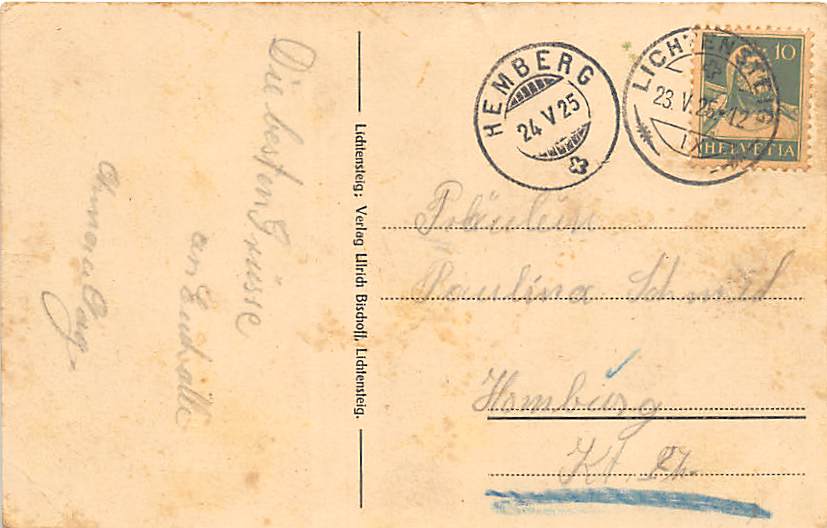 Die besten Grüsse
an Euch alle
Lichtensteig; Verlag Ulrich Bischoff, Lichtensteig.
HEMBERG
24 V 25
LICHTENSTEIG
23. V. 25-12
IX
10
HELVETIA
Fräulein
Paulina Schmid
Homburg
Kt.